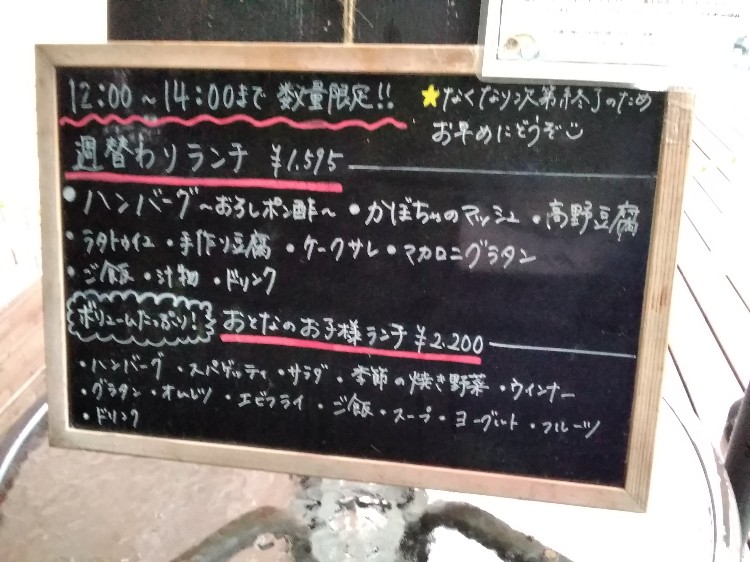 12:00～14:00まで 数量限定!!
★なくなり次第終了のため
お早めにどうぞ
週替わりランチ ¥1,595
・ハンバーグ～おろしポン酢～ ・かぼちゃのマッシュ ・高野豆腐
・ラタトゥイユ ・手作り豆腐 ・ケークサレ ・マカロニグラタン
・ご飯 ・汁物 ・ドリンク
ボリュームたっぷり! おとなのお子様ランチ ¥2.200
・ハンバーグ ・スパゲッティ ・サラダ ・季節の焼き野菜 ・ウインナー
・グラタン ・オムレツ ・エビフライ ・ご飯 ・スープ ・ヨーグルト ・フルーツ
・ドリンク